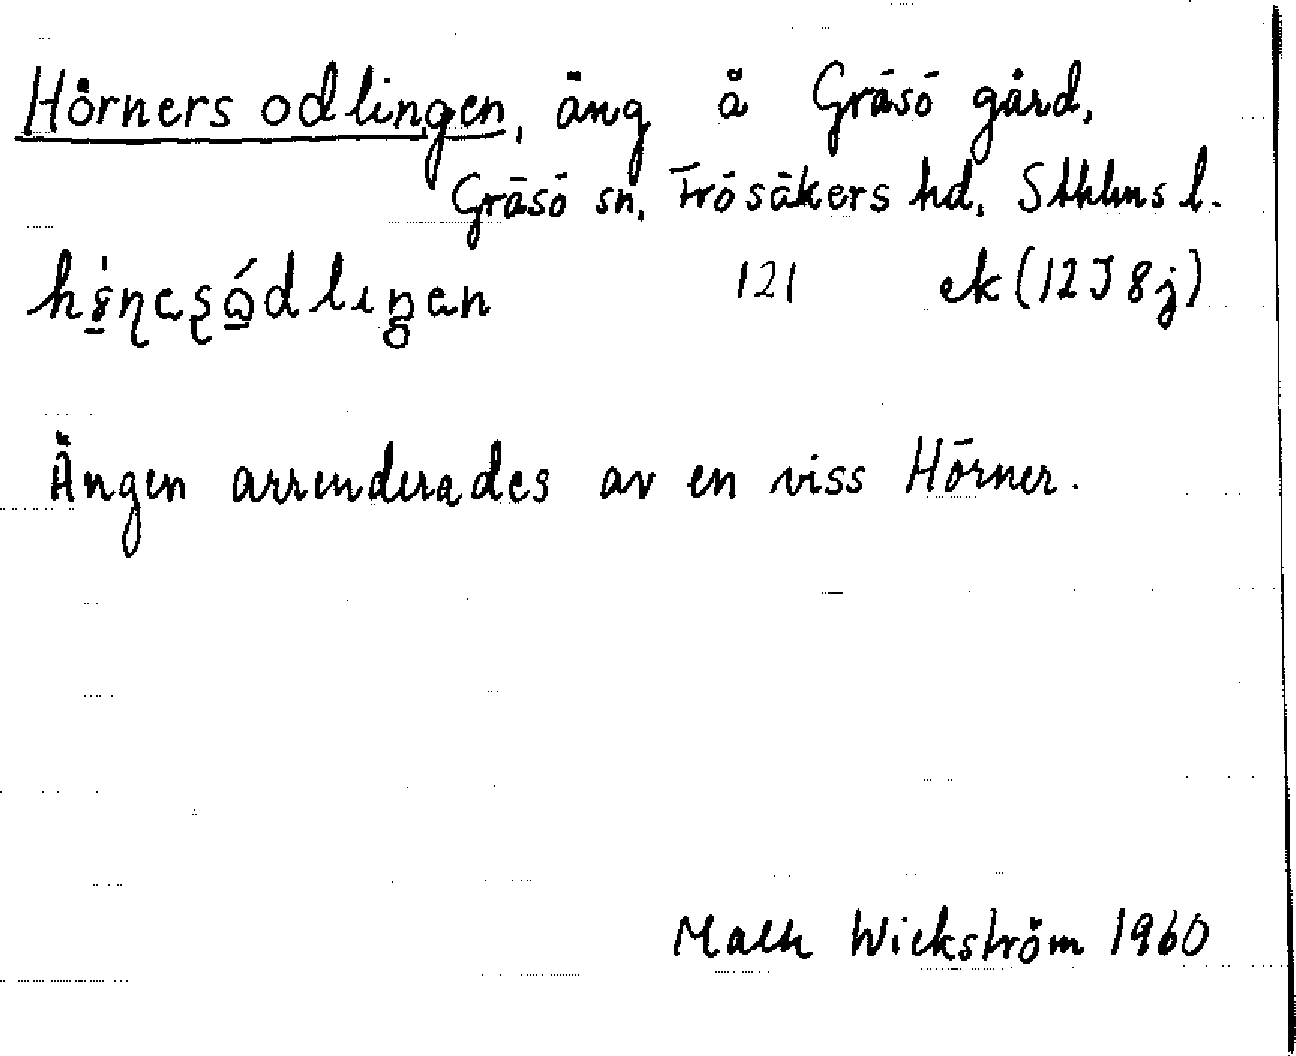 Hörners odlingen, äng å Gräsö gård,
Gräsö sn, Frösåkers hd, Sthlms l.
121 ek (12J 8j)
Ängen arrenderades av en viss Hörner.
Wickström 1960